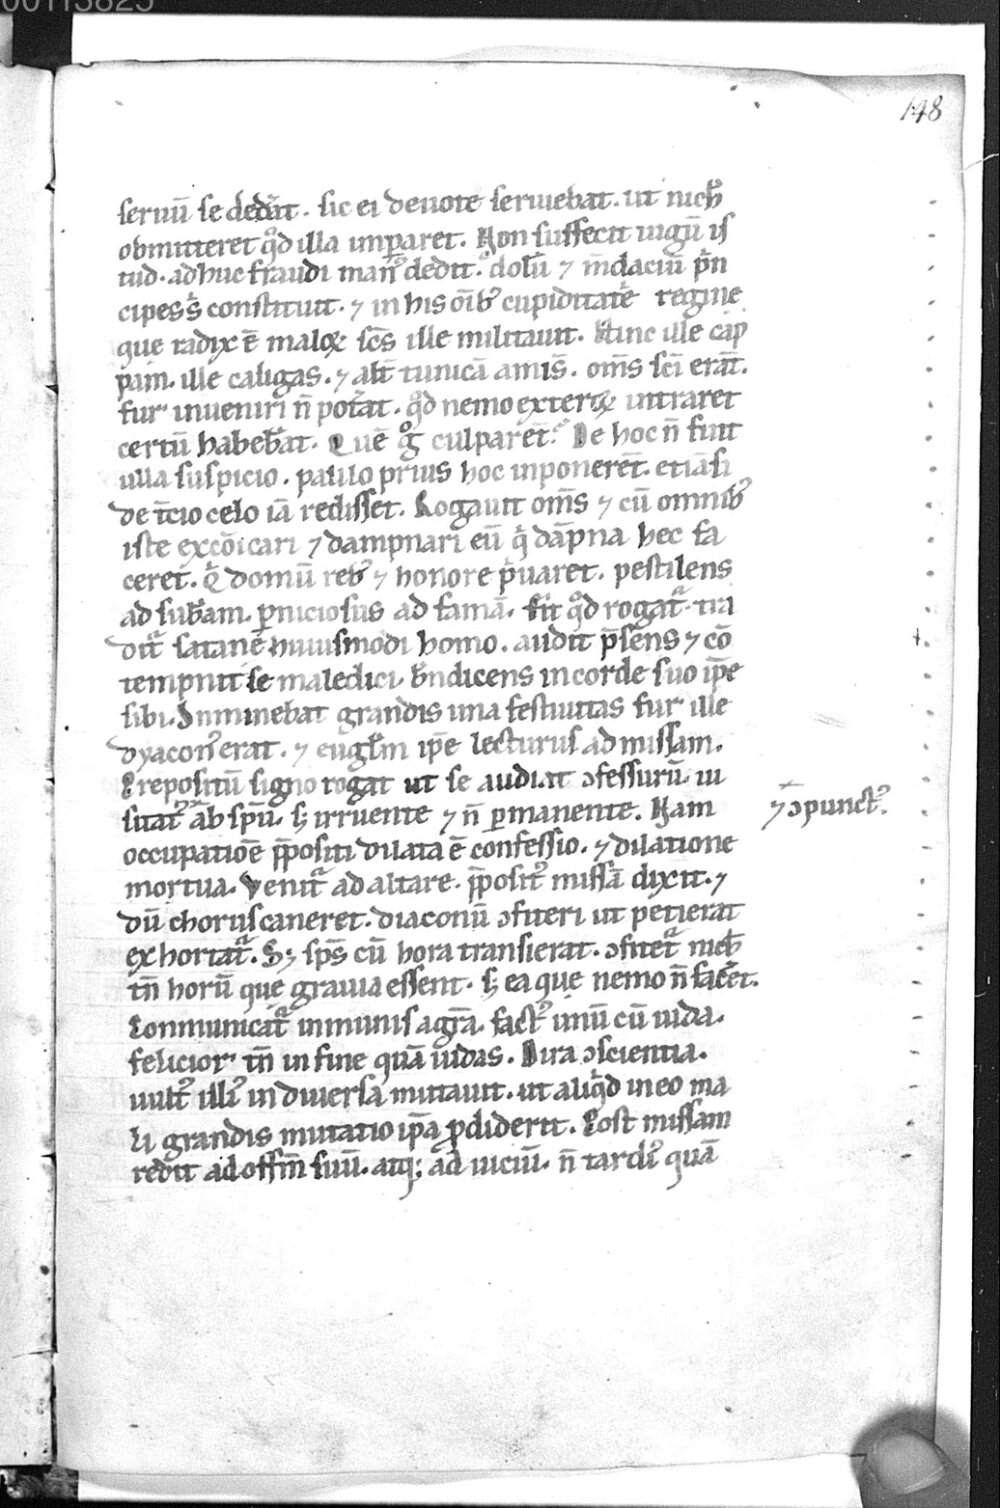 00113825
148
seruū se dedat̄. sic ei deuote seruiebat. ut nich̄
obmitteret qͦd illa imꝑaret. Non suffecit iugū is
tud. adhuc fraudi manꝰ dedit. dolū ⁊ m̄daciū pͥn
cipes sͥ constituit. ⁊ in his oīb; cupiditatē regine
que radix ē maloꝝ sc̄s ille militauit. Hinc ille cap
pam. ille caligas. ⁊ alt̄ tunicā amis̄. om̄s sc̄i erāt.
fur inueniri n̄ pot̄at. qͦd nemo exteroꝝ intraret
certū habeb̄at. Quē gͦ culparēt. De hoc n̄ fuit
ulla suspicio. paulo prius hoc inponerēt. etiā si
de t̄cio celo iā redisset. Rogauit om̄s ⁊ cū omnibꝰ
iste excōicari ⁊ dampnari eū qͥ dāpna hec fa
ceret. Qͥ domū reb; ⁊ honore pͥuaret. pestilens
ad sub̄am. ꝑniciosus ad famā. fit qͦd rogatᷣ. tra
ditᷣ satane huiusmodi homo. audit p̄sens ⁊ cō
tempnit se maledici. b̄ndicens in corde suo ip̄e
sibi. Inminebat grandis una festiuitas fur ille
dyaconꝰ erat. ⁊ eugl̄m ip̄e lecturus ad missam.
Prepositū signo rogat ut se audiat ↄfessurū. ui
sitatꝰ ab sp̄u. s; irruente ⁊ n̄ ꝑmanente. Nam
⁊ ↄpunctꝰ.
occupatiōe p̄positi dilata ē confessio. ⁊ dilatione
mortua. Venitᷣ ad altare. p̄positꝰ missā dixit. ⁊
dū chorus caneret. diaconū ↄfiteri ut petierat
exhortatᷣ. S; sp̄s cū hora transierat. ↄfitetᷣ nich̄
tn̄ horū que grauia essent. s; ea que nemo n̄ facēt.
Conmunicatᷣ inmunis a gr̄a. factꝰ unū cū iuda.
felicior tn̄ in fine quā iudas. Dira ↄscientia.
uultꝰ illiꝰ in diuersa mutauit. ut aliqͥd in eo ma
li grandis mutatio ip̄a ꝓdiderit. Post missam
redit ad offm̄ suū. atq; ad uiciū. n̄ tardiꝰ quā